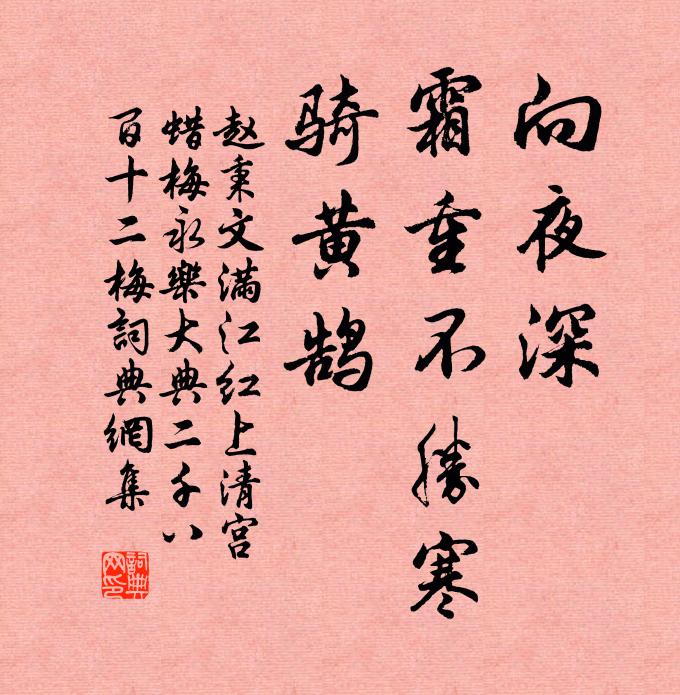 向夜深
霜重不胜寒
骑黄鹄
赵秉文满江红上清宫
蜡梅永樂大典二千八
百十二梅詞典網集
詞典
网印